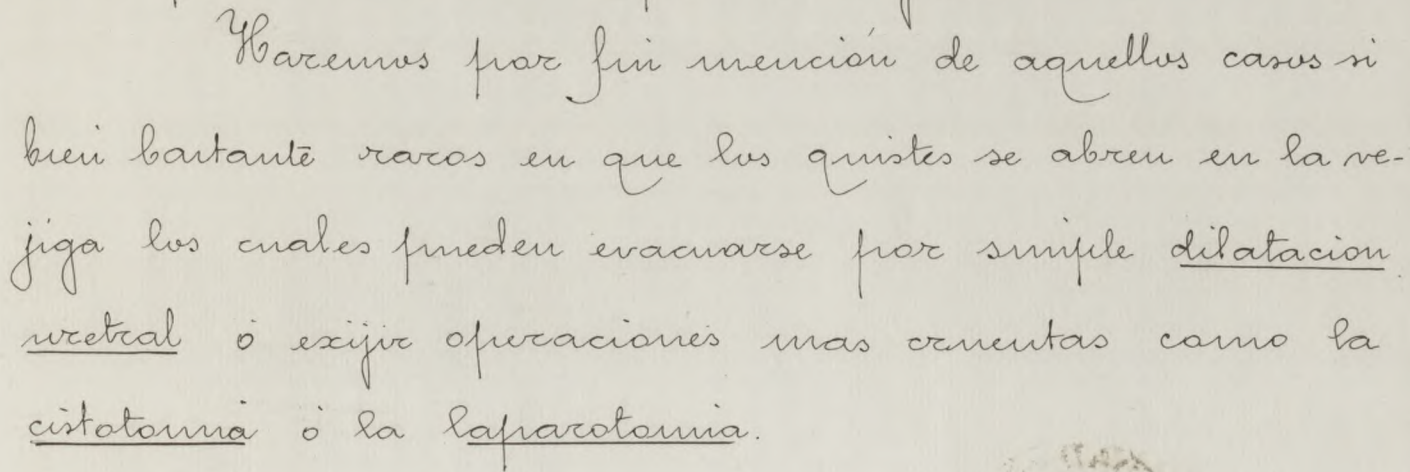 Haremos por fin mención de aquellos casos si
bien bastante raros en que los quistes se abren en la ve-
jiga los cuales pueden evacuarse por simple dilatacion
uretral ó exijir operaciones mas cruentas como la
cistotomia ó la laparotomia.